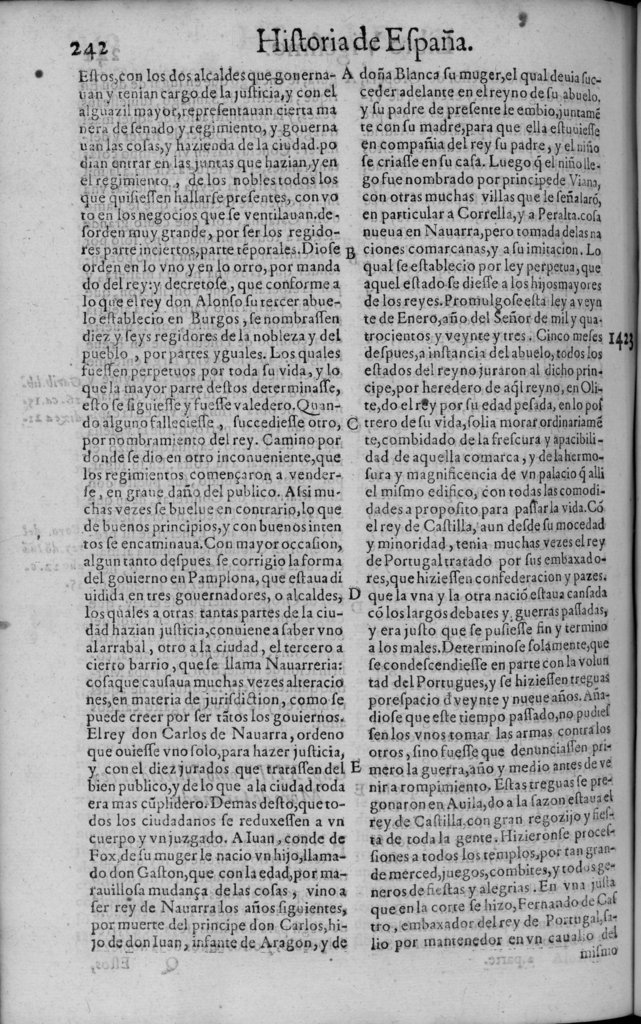 242
Historia de España.
Estos, con los dos alcaldes que gouerna-
uan y tenian cargo de la justicia, y con el
alguazil mayor, representauan cierta ma
nera de senado y regimiento, y gouerna
uan las cosas, y hazienda de la ciudad. po
dian entrar en las juntas que hazian, y en
el regimiento, de los nobles todos los
que quisiessen hallarse presentes, con vo
to en los negocios que se ventilauan. de-
sorden muy grande, por ser los regido-
res parte inciertos, parte tẽporales. Diose
orden en lo vno y en lo orro, por manda
do del rey: y decretose, que conforme a
lo que el rey don Alonso su tercer abue-
lo establecio en Burgos, se nombrassen
diez y seys regidores de la nobleza y del
pueblo, por partes yguales. Los quales
fuessen perpetuos por toda su vida, y lo
que la mayor parte destos determinasse,
esto se siguiesse y fuesse valedero. Quan-
do alguno falleciesse, succediesse otro,
por nombramiento del rey. Camino por
donde se dio en otro inconueniente, que
los regimientos començaron a vender-
se, en graue daño del publico. Assi mu-
chas vezes se buelue en contrario, lo que
de buenos principios, y con buenos inten
tos se encaminaua. Con mayor occasion,
algun tanto despues se corrigio la forma
del gouierno en Pamplona, que estaua di
uidida en tres gouernadores, o alcaldes,
los quales a otras tantas partes de la ciu-
dad hazian justicia, conuiene a saber vno
al arrabal, otro a la ciudad, el tercero a
cierto barrio, que se llama Nauarreria:
cosa que causaua muchas vezes alteracio
nes, en materia de jurisdiction, como se
puede creer por ser tãtos los gouiernos.
El rey don Carlos de Nauarra, ordeno
que ouiesse vno solo, para hazer justicia,
y con el diez jurados que tratassen del
bien publico, y de lo que a la ciudad toda
era mas cũplidero. Demas desto, que to-
dos los ciudadanos se reduxessen a vn
cuerpo y vn juzgado. A Iuan, conde de
Fox, de su muger le nacio vn hijo, llama-
do don Gaston, que con la edad, por ma-
rauillosa mudança de las cosas, vino a
ser rey de Nauarra los años siguientes,
por muerte del principe don Carlos, hi-
jo de don Iuan, infante de Aragon, y de
A
B
C
D
E
doña Blanca su muger, el qual deuia suc-
ceder adelante en el reyno de su abuelo,
y su padre de presente le embio, juntamẽ
te con su madre, para que ella estuuiesse
en compañia del rey su padre, y el niño
se criasse en su casa. Luego q̃ el niño lle-
go fue nombrado por principe de Viana,
con otras muchas villas que le señalarõ,
en particular a Corrella, y a Peralta. cosa
nueua en Nauarra, pero tomada de las na
ciones comarcanas, y a su imitacion. Lo
qual se establecio por ley perpetua, que
aquel estado se diesse a los hijos mayores
de los reyes. Promulgose esta ley a veyn
te de Enero, año del Señor de mil y qua-
trocientos y veynte y tres. Cinco meses
1423
despues, a instancia del abuelo, todos los
estados del reyno juraron al dicho prin-
cipe, por heredero de aq̃l reyno, en Oli-
te, do el rey por su edad pesada, en lo pos
trero de su vida, solia morar ordinariamẽ
te, combidado de la frescura y apacibili-
dad de aquella comarca, y de la hermo-
sura y magnificencia de vn palacio q̃ alli
el mismo edifico, con todas las comodi-
dades a proposito para passar la vida. Cõ
el rey de Castilla, aun desde su mocedad
y minoridad, tenia muchas vezes el rey
de Portugal tratado por sus embaxado-
res, que hiziessen confederacion y pazes.
que la vna y la otra naciõ estaua cansada
cõ los largos debates y guerras passadas,
y era justo que se pusiesse fin y termino
a los males. Determinose solamente, que
se condescendiesse en parte con la volun
tad del Portugues, y se hiziessen treguas
por espacio d veynte y nueue años. Aña-
diose que este tiempo passado, no pudies
sen los vnos tomar las armas contra los
otros, sino fuesse que denunciassen pri-
mero la guerra, año y medio antes de ve
nir a rompimiento. Estas treguas se pre-
gonaron en Auila, do a la sazon estaua el
rey de Castilla, con gran regozijo y fies-
ta de toda la gente. Hizieronse proces-
siones a todos los templos, por tan gran-
de merced, juegos, combites, y todos ge-
neros de fiestas y alegrias. En vna justa
que en la corte se hizo, Fernando de Cas
tro, embaxador del rey de Portugal, sa-
lio por mantenedor en vn cauallo del
mismo